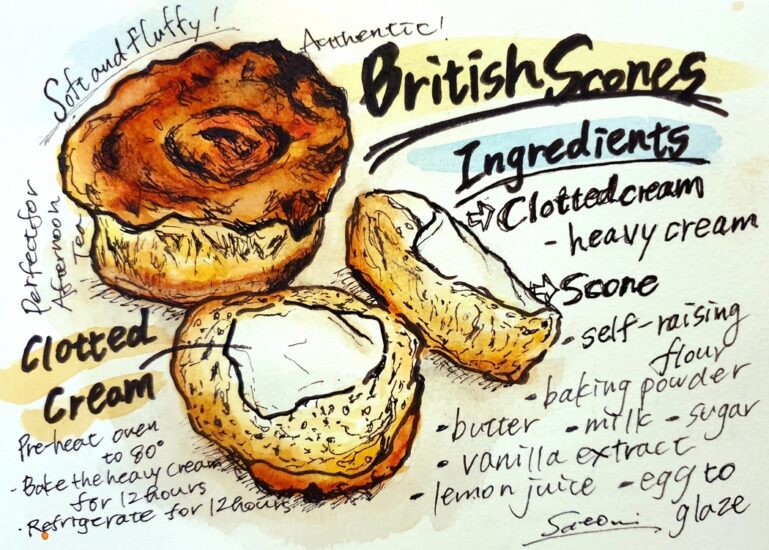 Soft and fluffy!
Authentic!
British Scones
Ingredients
⇨ Clotted cream
- heavy cream
⇨ Scone
- self-raising
flour
- baking powder
- butter - milk - sugar
- vanilla extract
- lemon juice - egg to
glaze
Perfect for
Afternoon
Tea
Clotted
Cream
Pre-heat oven
to 80°
- Bake the heavy cream
for 12 hours
- Refrigerate for 12 hours